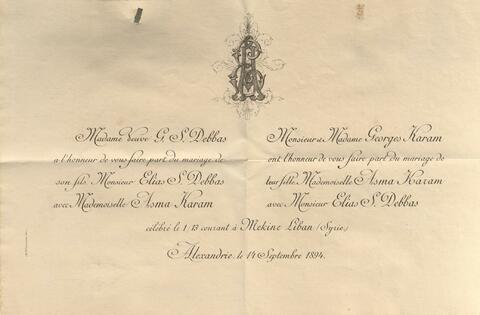 Madame veuve G. S. Debbas
a l'honneur de vous faire part du mariage de
son fils Monsieur Elias S. Debbas
avec Mademoiselle Asma Karam
Monsieur et Madame Georges Karam
ont l'honneur de vous faire part du mariage de
leur fille Mademoiselle Asma Karam
avec Monsieur Elias S. Debbas
célébré le 1/13 courant à Mekine Liban (Syrie)
Alexandrie, le 14 Septembre 1894.